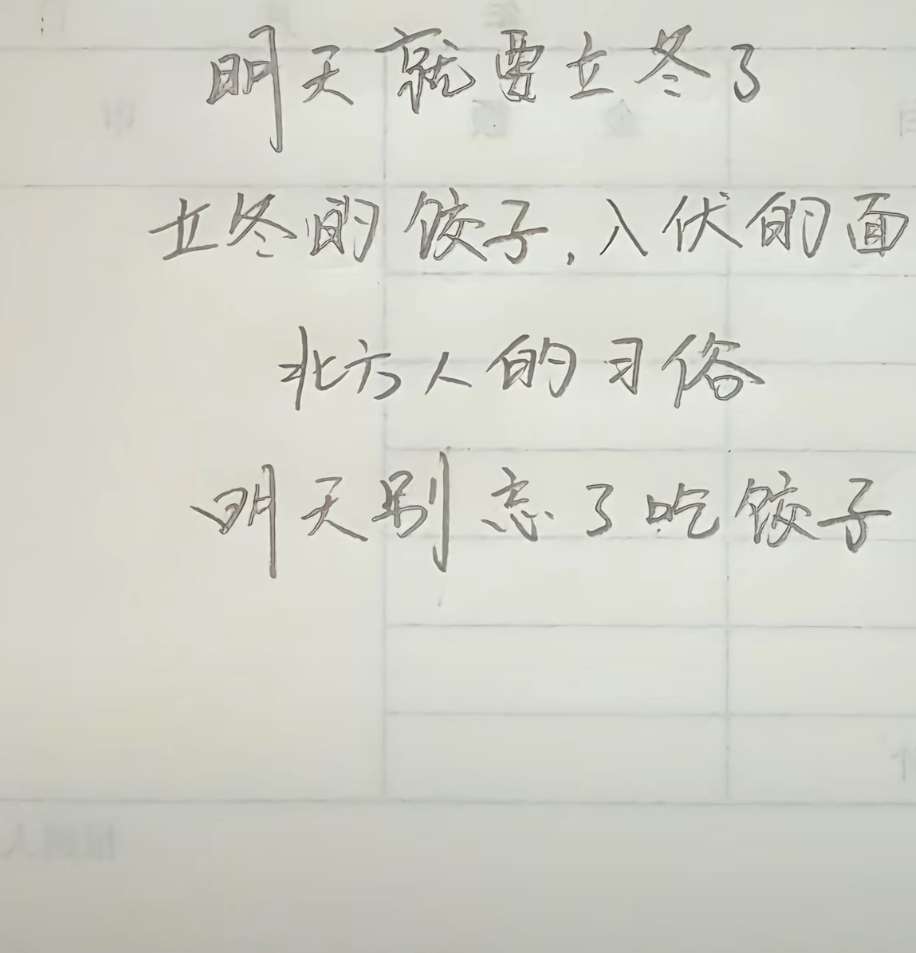 明天就要立冬了
立冬的饺子,入伏的面
北方人的习俗
明天别忘了吃饺子